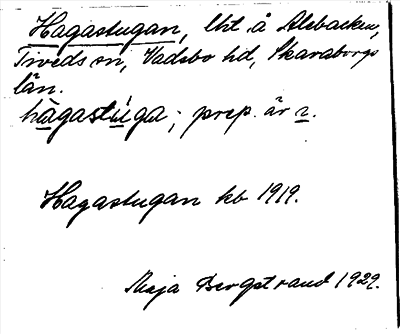 Hagastugan, lht å Alebacken,
Tiveds sn, Vadsbo hd, Skaraborgs
län.
hàgastúga; prep. är
Hagastugan kb 1919.
Maja Bergstrand 1929.